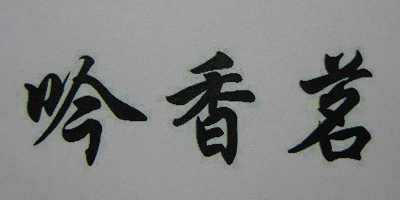 吟香茗